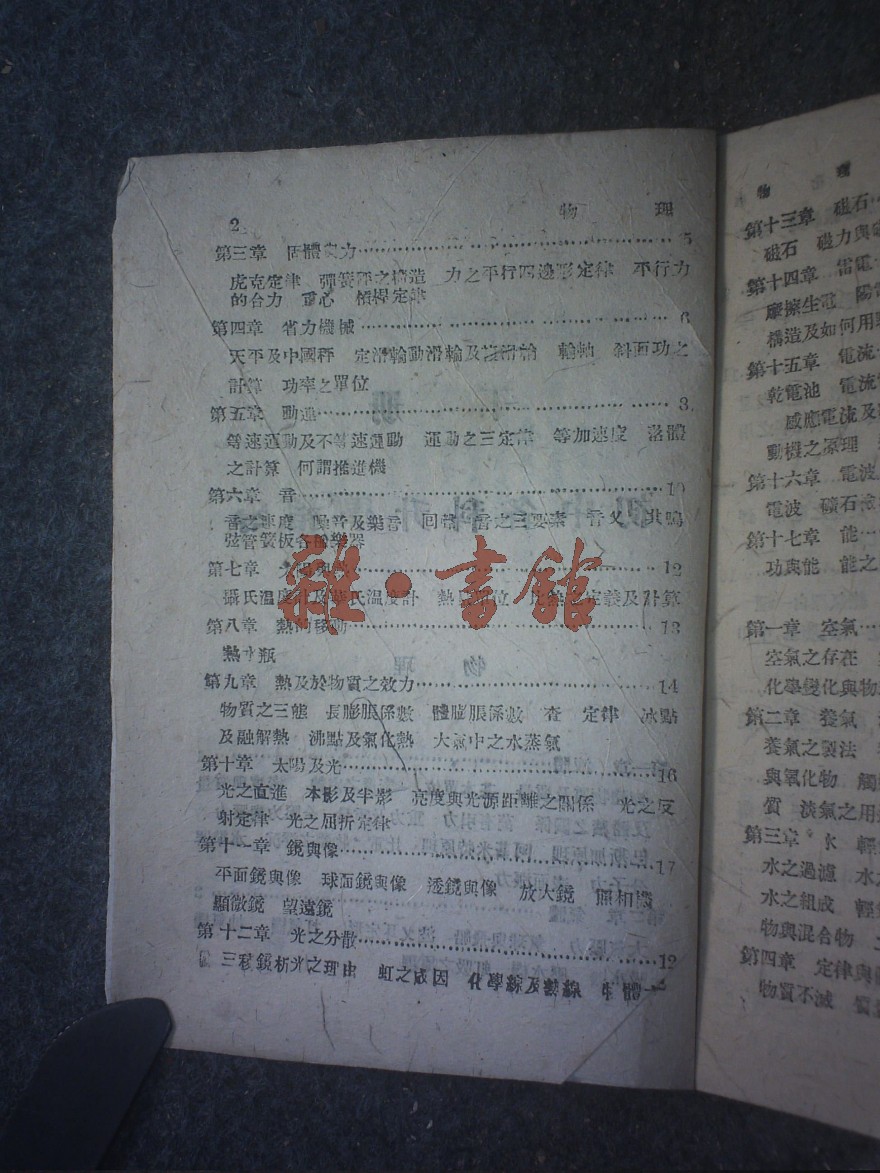 2
物 理
第三章 固體與力 5
虎克定律 彈簧秤之構造 力之平行四邊形定律 平行力
的合力 重心 槓桿定律
第四章 省力機械 6
天平及中國秤 定滑輪動滑輪及 輪軸 斜面功之
計算 功率之單位
第五章 動進
等速運動及不等速運動 運動之三定律 等加速度 落體
之計算 何謂推進機
第六章 音 10
音之速度 噪音及樂音 回聲 音之三要素 音叉 共鳴
弦管簧板各種樂器
第七章 12
攝氏溫度計及華氏溫度計 定義及計算
第八章 熱的移動 13
熱水瓶
第九章 熱及於物質之效力 14
物質之三態 長膨脹係數 體膨脹係數 查 定律 冰點
及融解熱 沸點及氣化熱 大氣中之水蒸氣
第十章 太陽及光 16
光之直進 本影及半影 亮度與光源距離之關係 光之反
射定律 光之屈折定律
第十一章 鏡與像 17
平面鏡與像 球面鏡與像 透鏡與像 放大鏡 照相機
顯微鏡 望遠鏡
第十二章 光之分散 12
三稜鏡析光之理由 虹之成因 化學線及熱線
雜·書館
物 理
第十三章 磁石
磁石 磁力與
第十四章 雷電
摩擦生電 陽電
構造及如何用
第十五章 電流
乾電池 電流
感應電流及
動機之原理
第十六章 電波
電波 礦石
第十七章 能
功與能 能之
第一章 空氣
空氣之存在
化學變化與物
第二章 養氣
養氣之製法
與氧化物
質 淡氣之用
第三章 水
水之過濾 水
水之組成 輕
物與混合物
第四章 定律與
物質不滅